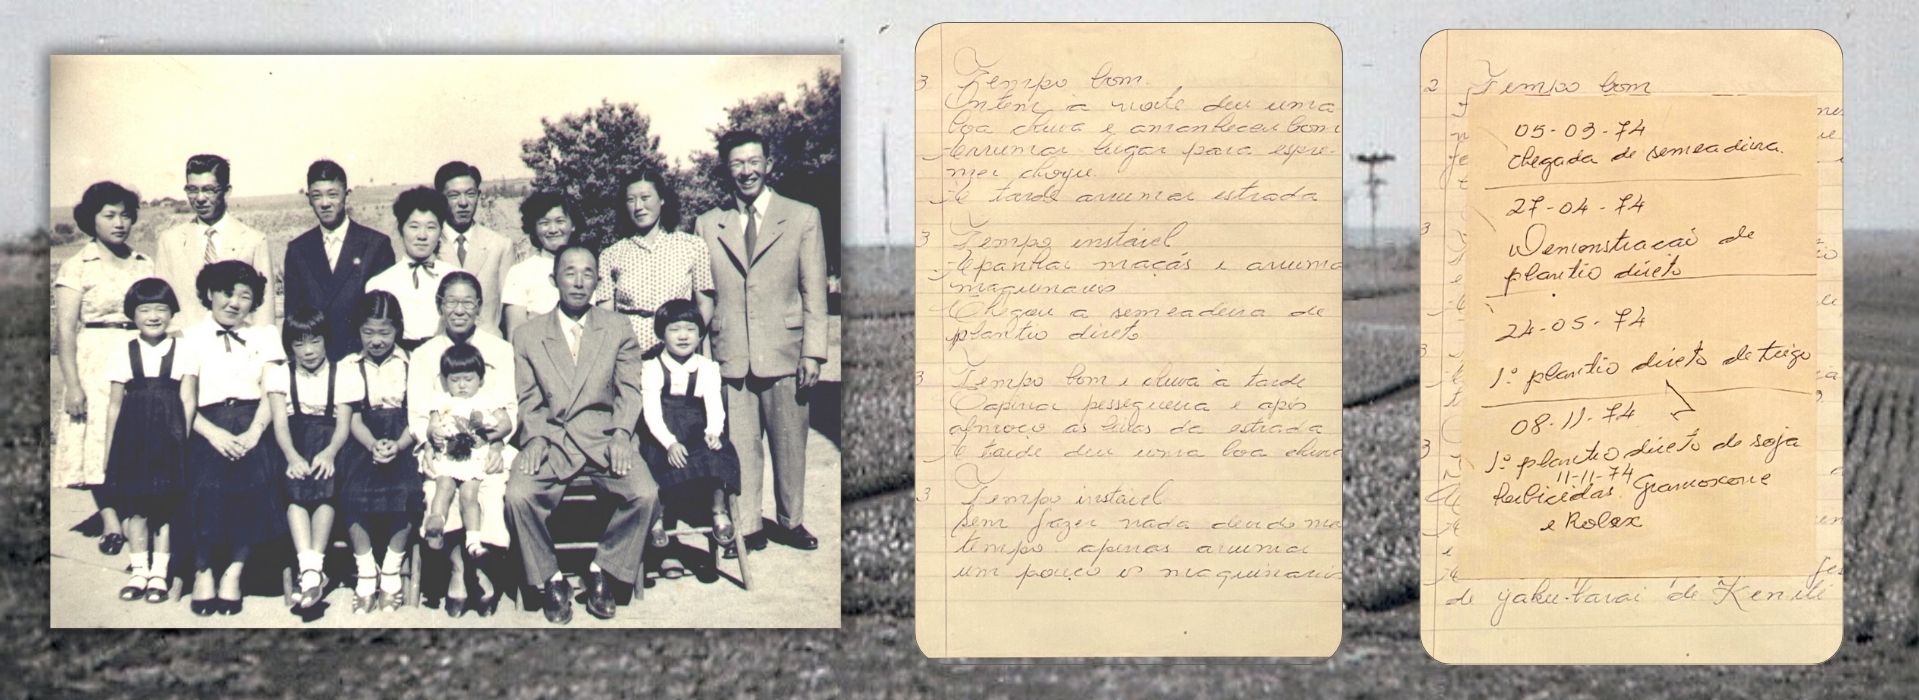 3 Tempo bom.
Ontem à noite deu uma
boa chuva e amanheceu bom
Arrumar lugar para espre-
mer choyu.
A tarde arrumar estrada
3 Tempo instavel
Apanhar maçãs e arruma
maquinarios
Chegou a semeadeira de
plantio direto
3 Tempo bom e chuva à tarde
Capinar pessegueiro e após
almoço as ruas da estrada
A tarde deu uma boa chuva
3 Tempo instavel
Sem fazer nada devido mo
tempo. apenas arrumar
um pouco o maquinario
2 Tempo bom
05-03-74
chegada de semeadeira.
27-04-74
Demonstracaõ de
plantio direto
24-05-74
1º plantio direto de trigo
08-11-74
1º plantio direto de soja
11-11-74
herbicidas Gramoxone
e Rolox
de yaku-barai de Kenití